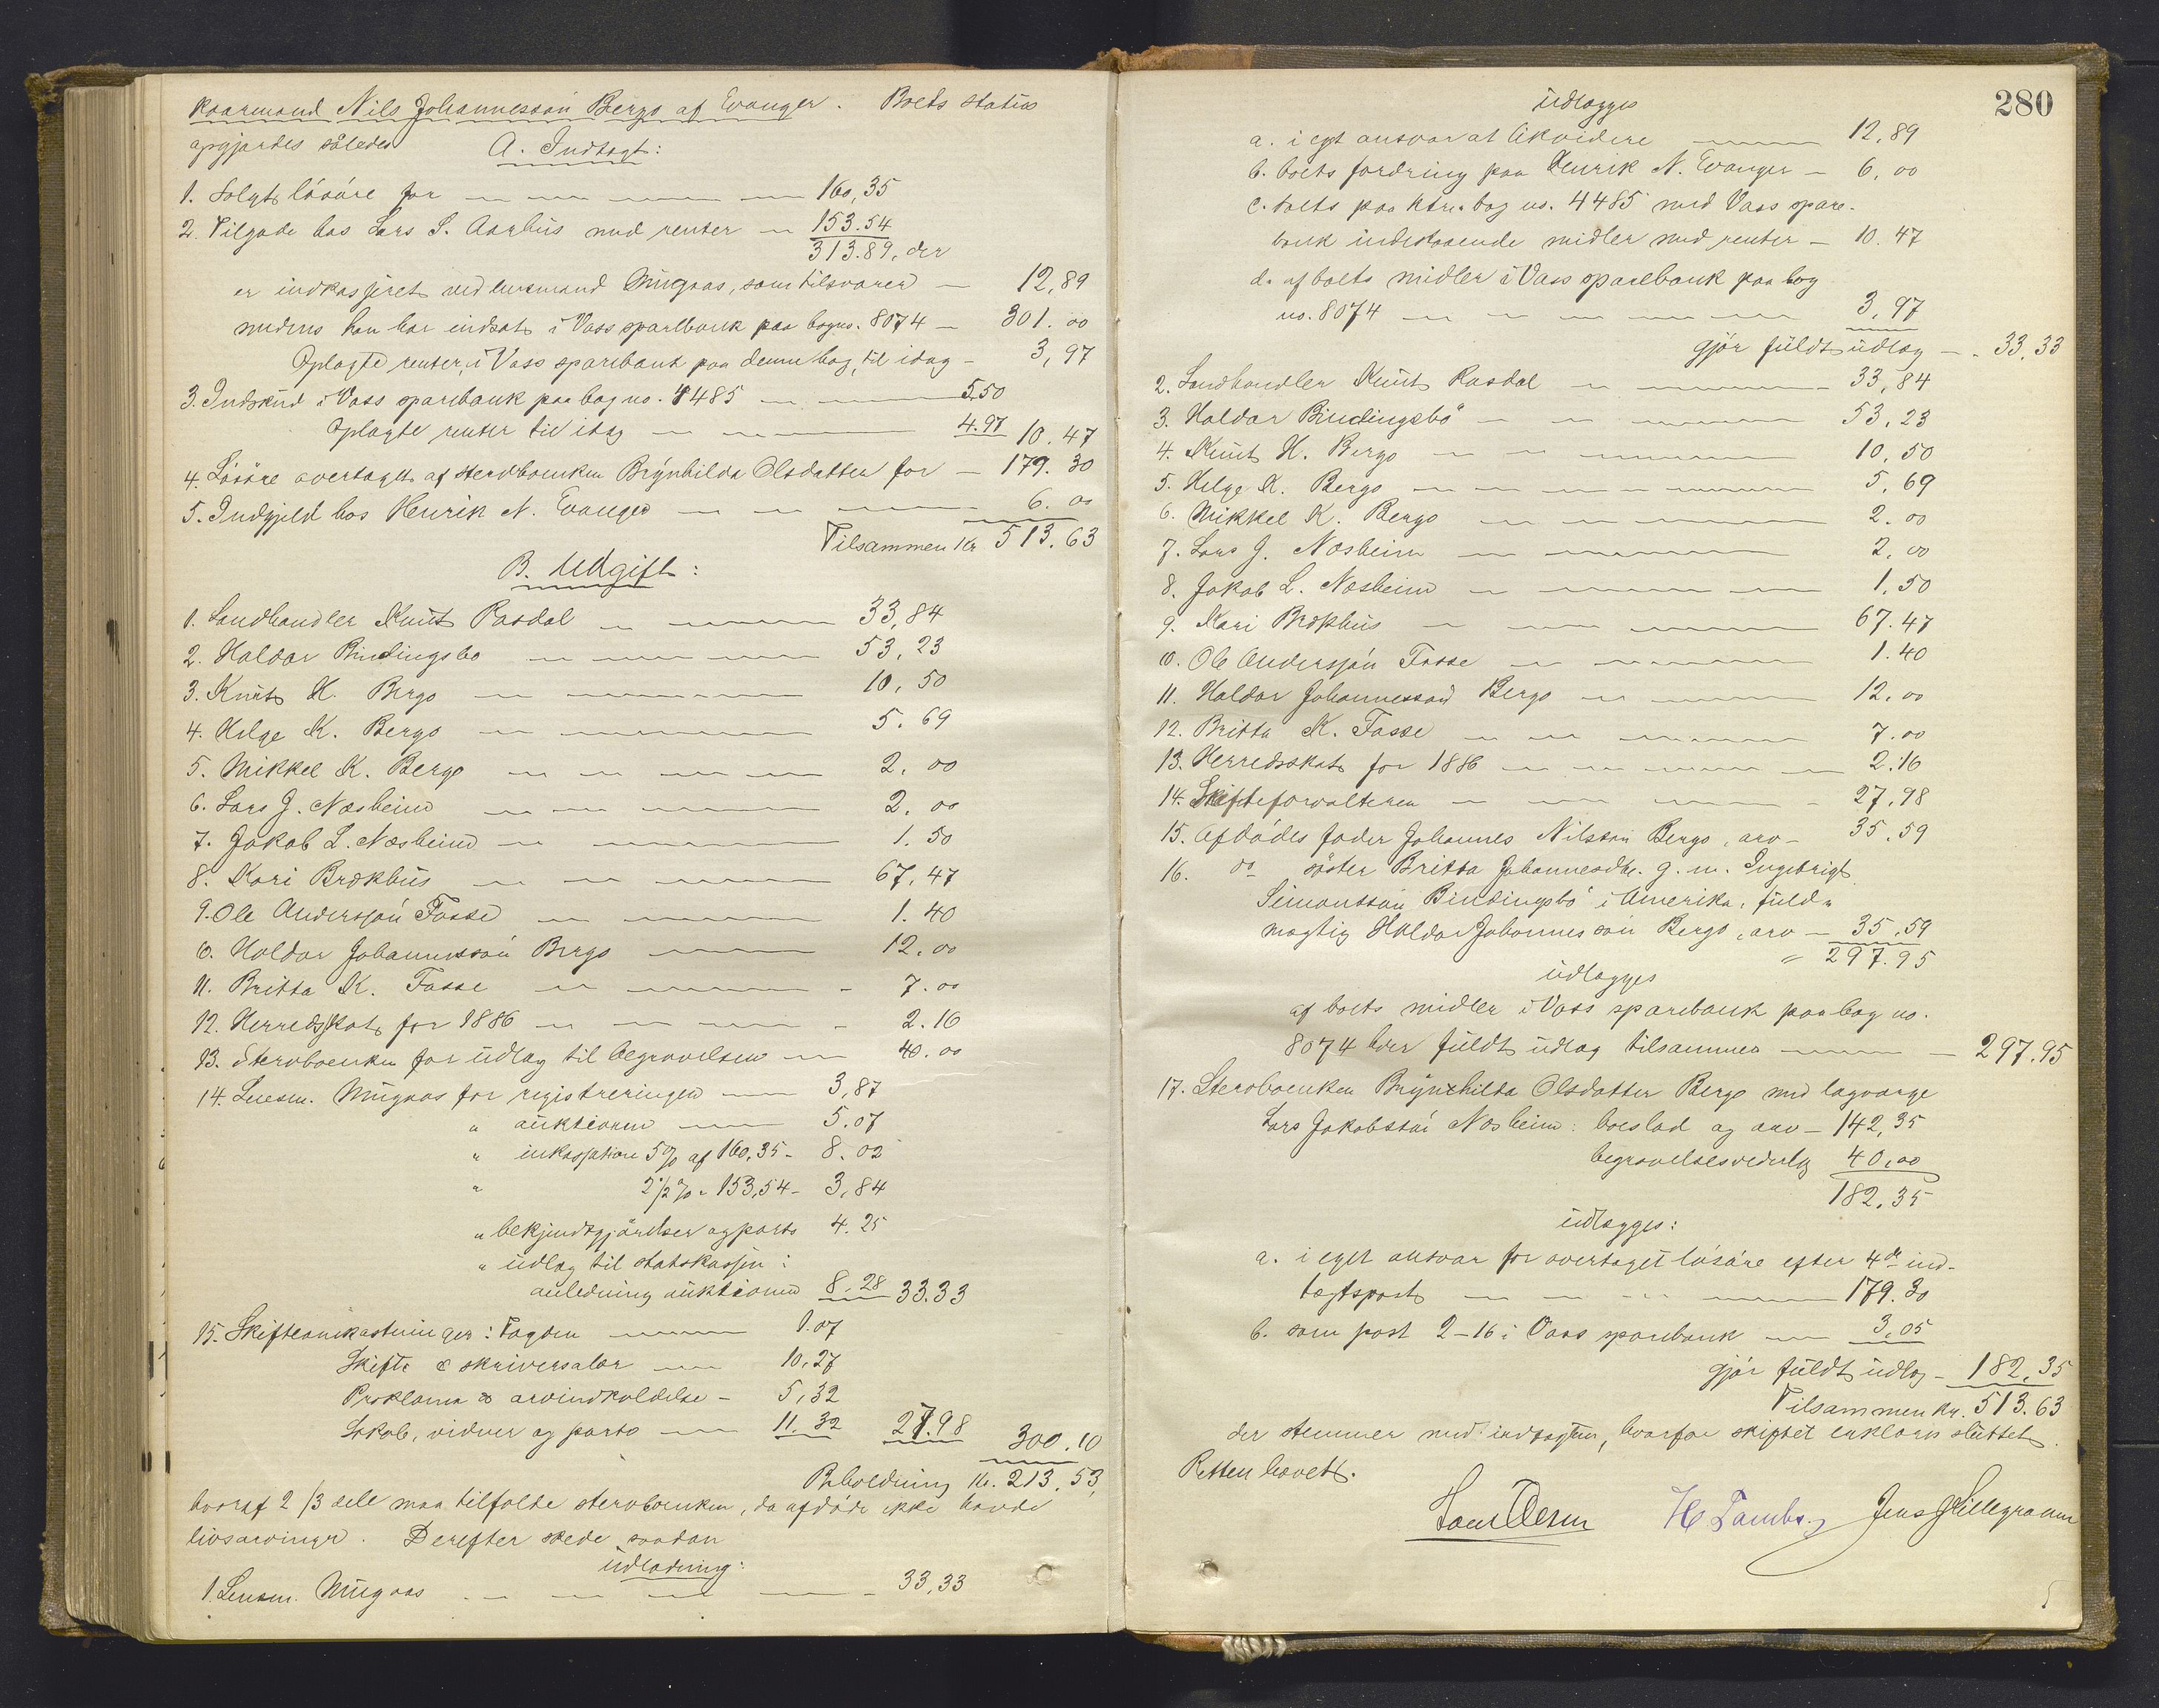 Kaarmand Nils Johannesson Bergo af Evanger. Boets status
opgjordes således A. Indtægt:
1. Solgt løsøre for 160,35
2. Tilgode hos Lars S. Aarhus med renter 153.54
313.89, der
er indkasseret ved lensmand Mugaas, som tilsvarer 12,89
medens han har indsat i Voss sparebank paa bog no. 8074 301.00
Oplagte renter, i Voss sparebank paa denne bog, til idag 3,97
3. Indskud i Voss sparebank paa bog no. 4485 5.50
Oplagte renter til idag 4.97 10.47
4. Løsøre overtaget af stervboenken Brynhilda Olsdatter for 179.30
5. Indgjeld hos Henrik N. Evanger 6.00
Tilsammen Kr 513.63
B. Udgift:
1. Landhandler Knut Rasdal 33,84
2. Haldor Bindingsbø 53,23
3. Knut H. Bergo 10,50
4. Helge K. Bergo 5.69
5. Mikkel K. Bergo 2,00
6. Lars J. Næsheim 2,00
7. Jakob L. Næsheim 1.50
8. Kari Brækhus 67,47
9. Ole Andersson Fosse 1.40
10. Haldor Johannesson Bergo 12.00
11. Britta K. Fosse 7.00
12. Herredsskat for 1886 2.16
13. Stervboenken for udlæg til begravelsen 40.00
14. Lensm. Mugaas for registreringen 3,87
" auktionen 5.07
" inkassation 5% af 160,35 - 8.02
" 2 1/2 % " 153,54 - 3,84
" bekjendtgjørelser og porto 4.25
" udlæg til statskassen i
anledning auktionen 8.28 33.33
15. Skifteomkostninger: Fogden 1.07
Skifte & skriversalær 10,27
Proklama & arvindkaldelse - 5,32
Lokale, vidner og porto 11.32 27.98 300.10
Beholdning Kr. 213,53,
hvoraf 2/3 dele maa tilfalde stervboenken, da afdøde ikke havde
livsarvinger. Derefter skede saadan
udlodning:
1. Lensm. Mugaas 33,33
280
udlægges
a. i eget ansvar at likvidere 12,89
b. boets fordring paa Henrik N. Evanger - 6,00
c. boets paa ktra. bog no. 4485 med Voss spare-
bank indestaaende midler med renter - 10.47
d. af boets midler i Voss sparebank paa bog
no. 8074 3,97
gjør fuldt udlæg - 33,33
2. Landhandler Knut Rasdal 33,84
3. Haldor Bindingsbø 53,23
4. Knut H. Bergo 10,50
5. Helge K. Bergo 5,69
6. Mikkel K. Bergo 2.00
7. Lars J. Næsheim 2,00
8. Jakob L. Næsheim 1,50
9. Kari Brækhus 67.47
10. Ole Andersson Fosse 1.40
11. Haldor Johannesson Bergo 12,00
12. Britta K. Fosse 7.00
13. Herredsskat for 1886 2.16
14. Skifteforvalteren 27,98
15. Afdødes fader Johannes Nilsson Bergo, arv - 35,59
16. do søster Britta Johannesdtr. g. m. Ingebrigt
Simonsson Bindingsbø i Amerika, fuld-
mægtig Haldor Johannesson Bergo, arv - 35,59
297.95
udlægges
af boets midler i Voss sparebank paa bog no.
8074 hver fuldt udlæg tilsammen 297,95
17. Stervboenken Brynhilda Olsdatter Bergo med lagværge
Lars Jakobson Næsheim: boeslod og arv - 142,35
begravelsesvederlag 40,00
182,35
udlægges:
a. i eget ansvar for overtaget løsøre efter 4de ind-
tægtspost 179.30
b. som post 2-16 i Voss sparebank 3,05
gjør fuldt udlæg - 182,35
Tilsammen Kr. 513.63
der stemmer med indtægten, hvorfor skiftet erklæres sluttet.
Retten hævet.
H Tambs. Jens Hillegraum